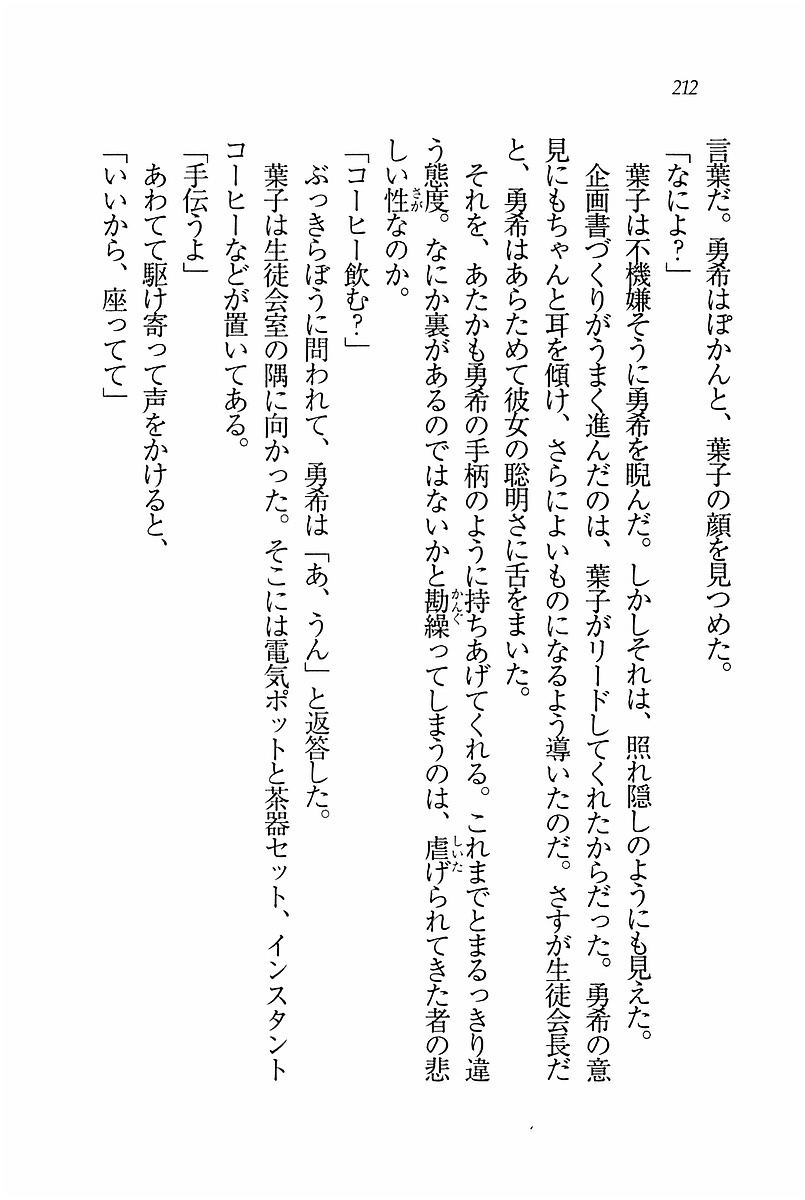 212
言葉だ。勇希はぽかんと、葉子の顔を見つめた。
「なによ？」
葉子は不機嫌そうに勇希を睨んだ。しかしそれは、照れ隠しのようにも見えた。
企画書づくりがうまく進んだのは、葉子がリードしてくれたからだった。勇希の意
見にもちゃんと耳を傾け、さらによいものになるよう導いたのだ。さすが生徒会長だ
と、勇希はあらためて彼女の聡明さに舌をまいた。
それを、あたかも勇希の手柄のように持ちあげてくれる。これまでとまるっきり違
う態度。なにか裏があるのではないかと勘繰ってしまうのは、虐げられてきた者の悲
しい性なのか。
「コーヒー飲む？」
ぶっきらぼうに問われて、勇希は「あ、うん」と返答した。
葉子は生徒会室の隅に向かった。そこには電気ポットと茶器セット、インスタント
コーヒーなどが置いてある。
「手伝うよ」
あわてて駆け寄って声をかけると、
「いいから、座ってて」